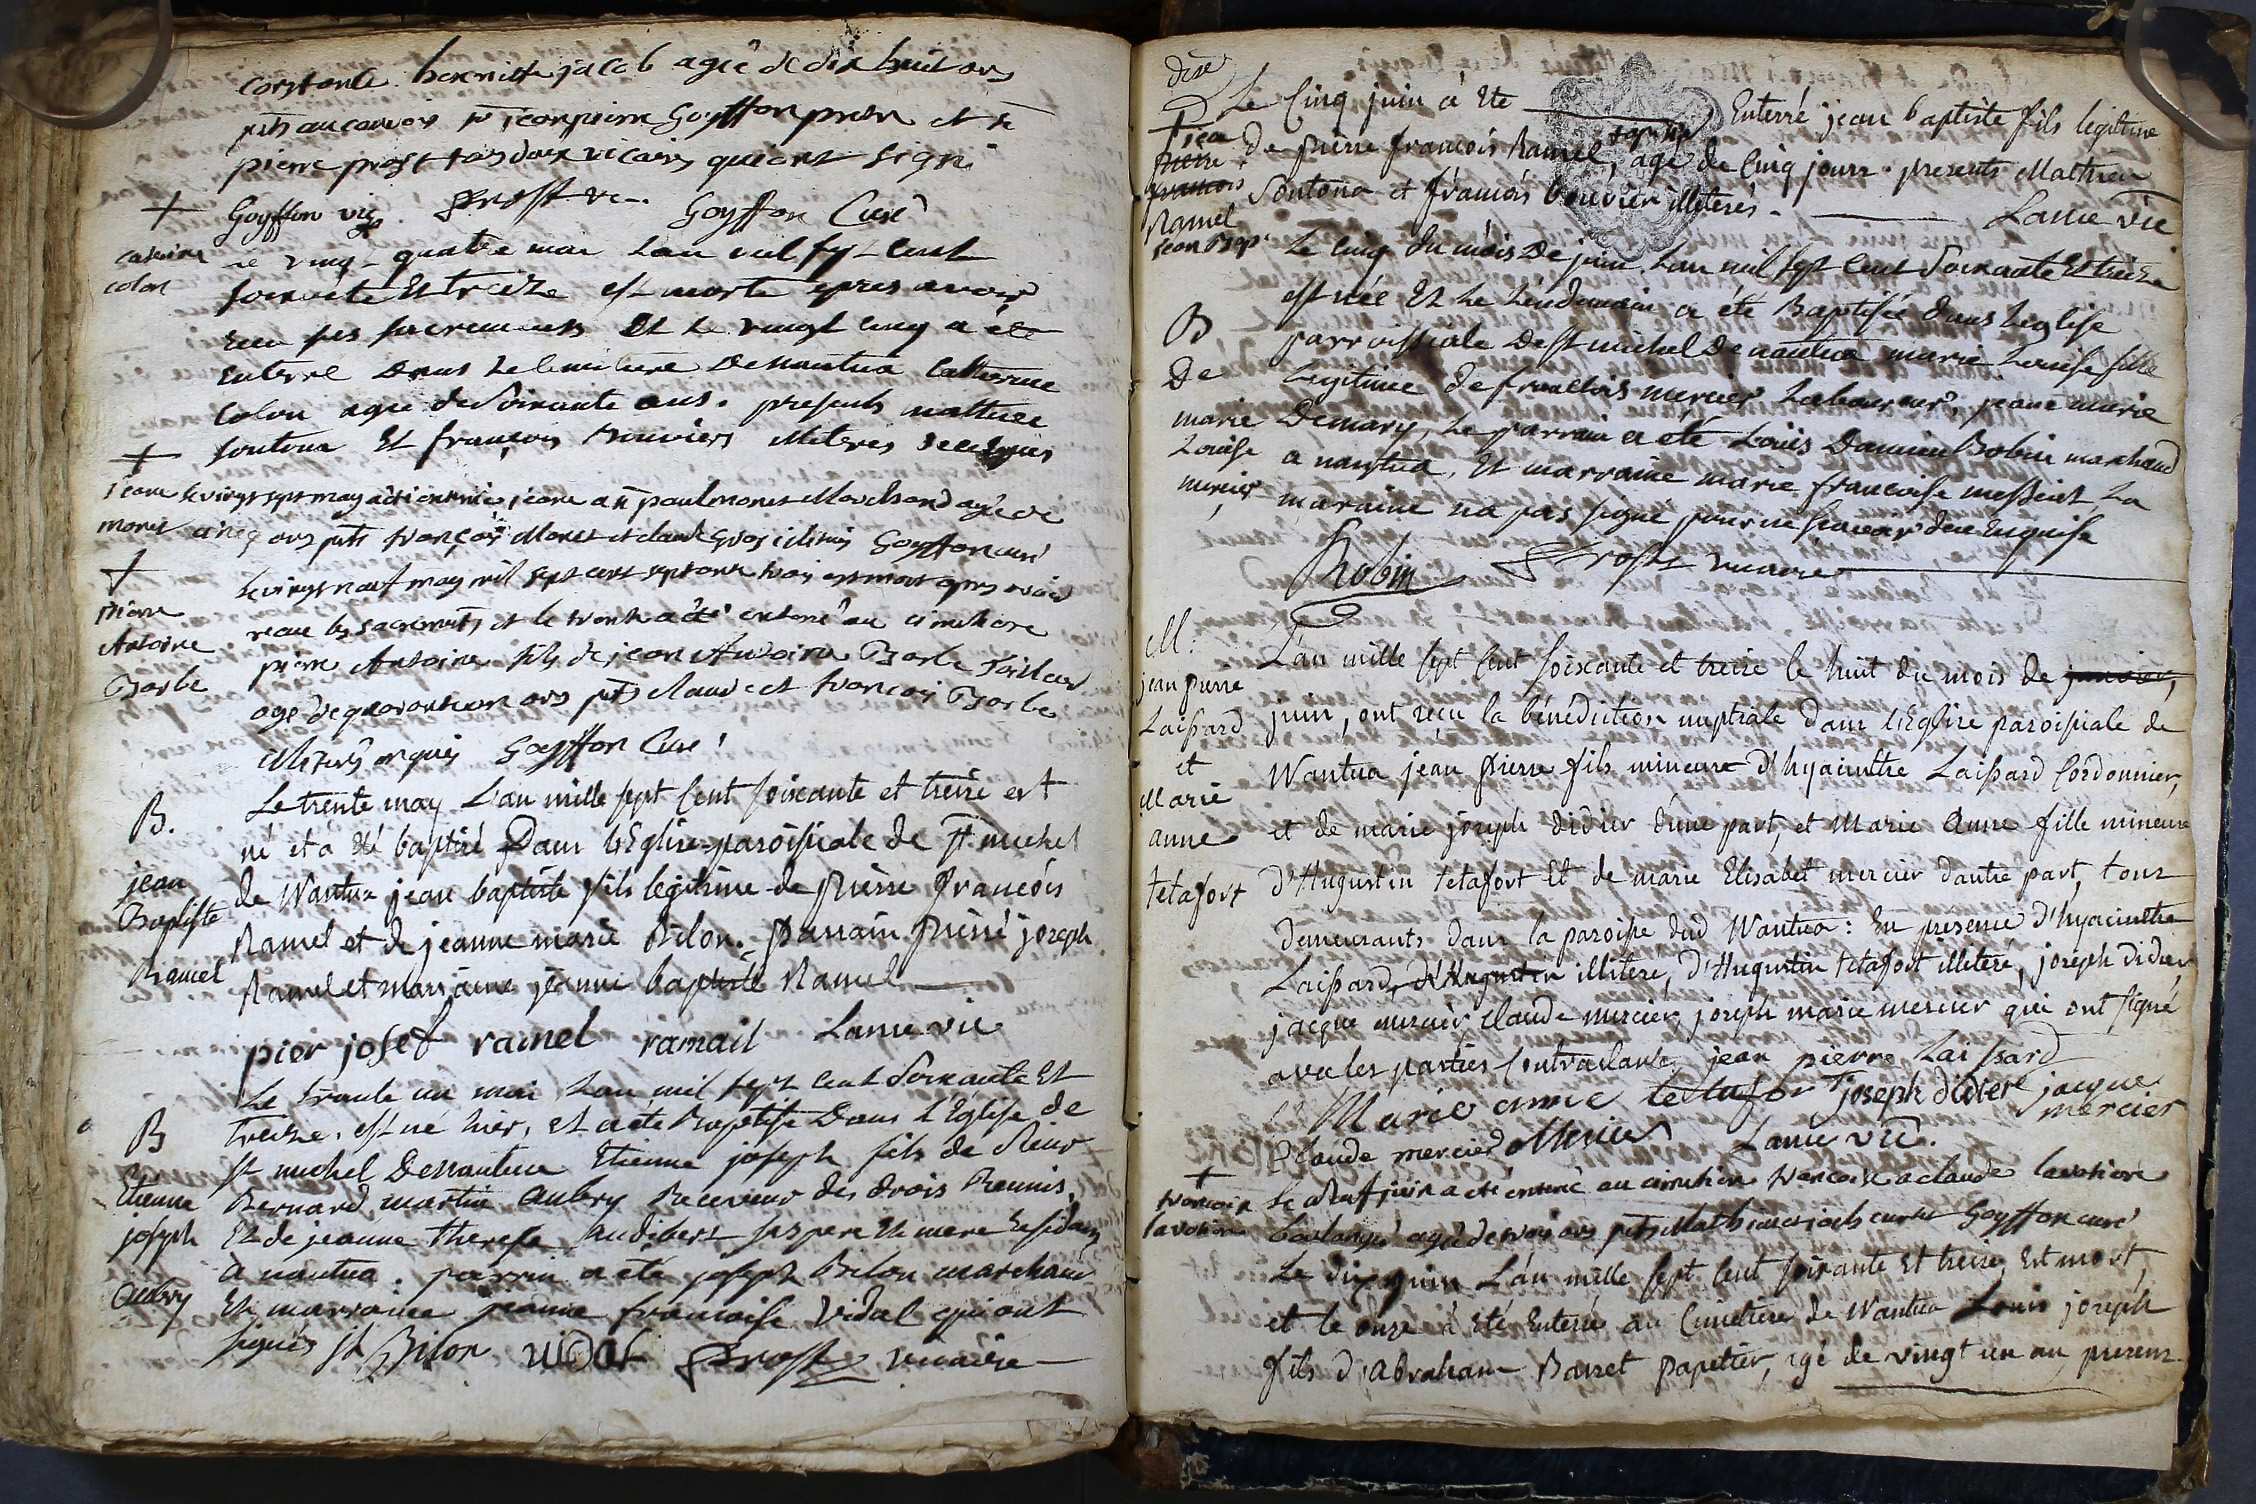 constante hermitte jacob agée de dix huit ans
pnts au convoy sr jean pierre Goyffon pretre et sr
pierre prost tous deux vicaires qui ont signé
Goyffon vic. Prost vic. Goyffon Curé
+
caterine
colon
le vingt quatre mai Lan mil sept cent
soixante Et treize est morte apres avoir
recu ses sacrements Et le vingt cinq a été
Enterré dans le cimitiere de nantua Catherine
Colon agée de soixante ans. presents mathieu
soutona Et françois Bouvier illiteres
+
jeane
monet
le vingt sept may a été enterrée jeane a paul monet Marchand agée de
cinq ans pnts françois Monet et claude illiterés Goyffon curé
+
pierre
Antoine
Barbe
Le vingt neuf may mil sept cent septante trois est mort apres avoir
recue les sacrements et le trente a été enterré au cimitiere
pierre Antoine fils de jean Antoine Barbe
agé de quarante un ans pnts claude et françois Barbe
illiterés enquis Goyffon Curé
B.
jean
Baptiste
Ramel
Le trente may L'an mille sept Cent soixante et treize est
né et a été baptisé Dans l'Eglise paroissiale de St michel
de Nantua jean baptiste fils légitime de Pierre François
Ramel et de jeanne marie Bilon. Parrain Pierre joseph
Ramel et marraine jeanne baptiste Ramel
pier josef ramel ramail Lame vic
B
Etienne
joseph
Aubry
Le trante un mai Lan mil sept cent soixante Et
treize, est né hier, Et a été Baptisé Dans l'Eglise de
St michel De Nantua Etienne joseph fils de Sieur
Bernard martin Aubry Receveur des drois Reunis,
Et de jeanne therese Audibert ses pere Et mere Residants
a nantua. parrin a été joseph Bilon marchand
Et marraine jeanne francoise Vidal qui ont
signés Bilon vidal Prost vicaire
dixe
+
jean
pierre
francois
Ramel
jean Bap
Le Cinq juin à été Enterré jean baptiste fils légitime
de pierre francois Ramel, agé de Cinq jours. presents Mathieu
Soutona et francois bouvier illiterés. Lame vic
B
De
marie
Louise
mercier
Le cinq du mois De juin Lan mil sept cent Soixante Et treize
est née Et le Lendemain a été Baptisée dans Leglise
parroissiale De St michel De nantua marie Louise fille
legitime de francois mercier Laboureur, jeane marie
Demary, Le parrain a été Louis Damien Robin marchand
a nantua, Et marraine marie francoise messiat, La
maraine na pas signé pour ne scavoir dece Enquise
Robin Prost vicaire
M:
jean pierre
Laissard
et
Marie
anne
tetafort
L'an mille sept Cent soixante et treize le huit du mois de janvier,
juin, ont reçu la bénédiction nuptiale dans l'Eglise paroissiale de
Nantua jean Pierre fils mineure d'hyacinthe Laissard Cordonnier,
et de marie joseph didier d'une part, et Marie Anne fille mineure
d'Augustin tetafort Et de marie Elisabet mercier dautre part, tous
demeurants dans la paroisse dud Nantua: En presence d'hyacinthe
Laissard, d'Augustin illiteré, d'Augustin tetafort illiteré, joseph didier,
jacque mercier, claude mercier, joseph marie mercier qui ont signé
avec les parties Contractantes jean pierre Laissard
Marie anne tettafor joseph didier jacque
mercier
Claude mercier Mercier Lame vic.
+
francoise
lavotiere
Le neuf juin a été enterré au cimitiere francoise a claude lavotiere
boulanger agée de trois ans pnts Mathieu Goyffon curé
Le dix juin L'an mille sept Cent soixante Et treize, Est mort,
et le onze a été Enterré au Cimétiere de Nantua Louis joseph
fils d'Abraham Barret papetier, agé de vingt un an presens